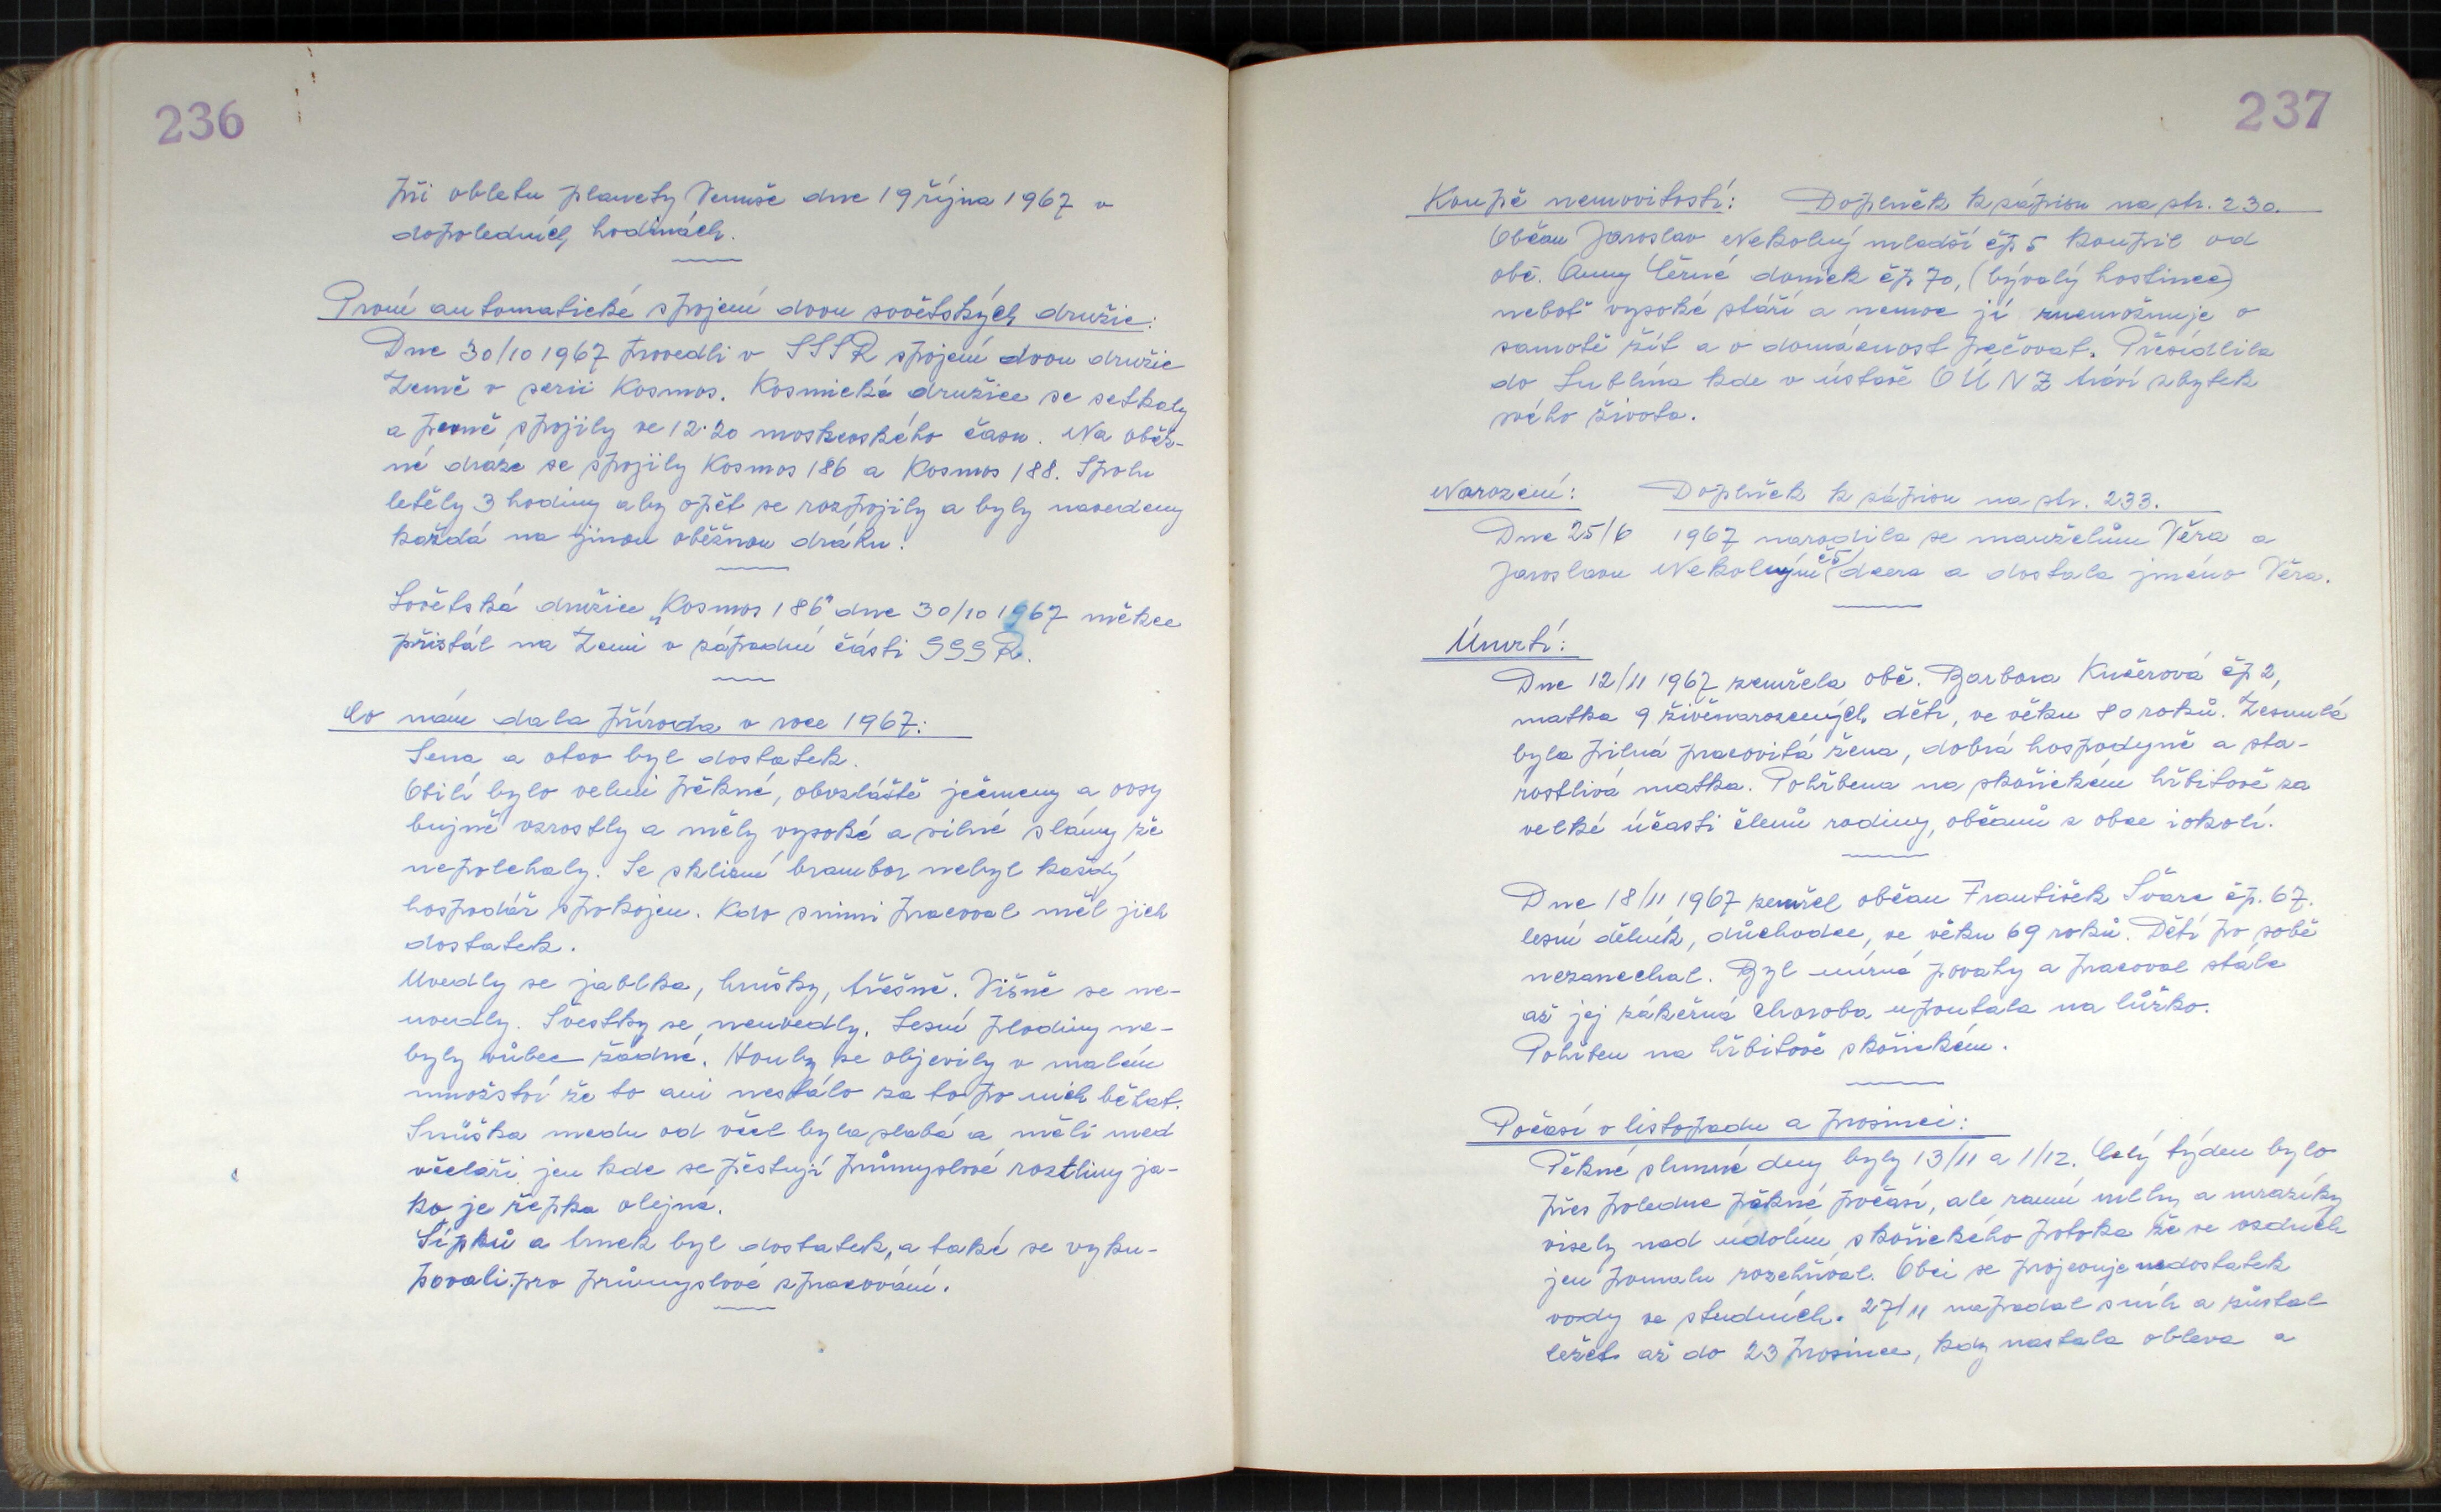 236
při obletu planety Venuše dne 19 října 1967 v
dopoledních hodinách.
První automatické spojení dvou sovětských družic:
Dne 30/10 1967 provedli v SSSR spojení dvou družic
Země v serii Kosmos. Kosmické družice se setkaly
a pevně spojily ve 12.20 moskevského času. Na oběž-
né dráze se spojily Kosmos 186 a Kosmos 188. Spolu
letěly 3 hodiny aby opět se rozpojily a byly navedeny
každá na jinou oběžnou dráhu.
Sovětská družice „Kosmos 186" dne 30/10 1967 měkce
přistál na Zemi v západní části SSSR.
Co nám dala příroda v roce 1967:
Sena a otav byl dostatek.
Obilí bylo velmi pěkné, obvzláště ječmeny a ovsy
bujně vzrostly a měly vysoké a silné slámy že
nepolehaly. Se sklizní brambor nebyl každý
hospodář spokojen. Kdo s nimi pracoval měl jich
dostatek.
Uvedly se jablka, hrušky, třešně. Višně se ne-
uvedly. Švestky se neuvedly. Lesní plodiny ne-
byly vůbec žádné. Houby se objevily v malém
množství že to ani nestálo za to po nich běhat.
Snůška medu od včel byla slabá a měli med
včelaři jen kde se pěstují průmyslové roztliny ja-
ko je řepka olejná.
Šípků a trnek byl dostatek, a také se vyku-
povali pro průmyslové zpracování.
237
Koupě nemovitostí: Doplněk k zápisu na str. 230.
Občan Jaroslav Nekolný mladší čp 5 koupil od
obč. Anny Černé domek čp 70, (bývalý hostinec)
neboť vysoké stáří a nemoc jí znemožnuje v
samotě žít a o domácnost pečovat. Přesídlila
do Lublína kde v ústavě OÚNZ tráví zbytek
svého života.
Narození: Doplněk k zápisu na str. 233.
Dne 25/6 1967 narodila se manželům Věra a
Jaroslavu Nekolným č5 dcera a dostala jméno Věra.
Úmrtí:
Dne 12/11 1967 zemřela obč. Barbora Kučerová čp 2,
matka 9 živěnarozených dětí, ve věku 80 roků. Zesnulá
byla pilná pracovitá žena, dobrá hospodyně a sta-
rostlivá matka. Pohřbena na skořickém hřbitově za
velké účasti členů rodiny, občanů z obce i okolí.
Dne 18/11 1967 zemřel občan František Švarc čp. 67.
lesní dělník, důchodce, ve věku 69 roků. Dětí po sobě
nezanechal. Byl mírné povahy a pracoval stále
až jej zákeřná choroba upoutala na lůžko.
Pohřben na hřbitově skořickém.
Počasí v listopadu a prosinci:
Pěkné slunné dny byly 13/11 a 1/12. Celý týden bylo
přes poledne pěkné počasí, ale ranní mlhy a mrazíky
visely nad údolím skořického potoka že se vzduch
jen pomalu rozehříval. Obci se projevuje nedostatek
vody ve studních. 27/11 napadal sníh a zůstal
ležet až do 23 prosince, kdy nastala obleva a